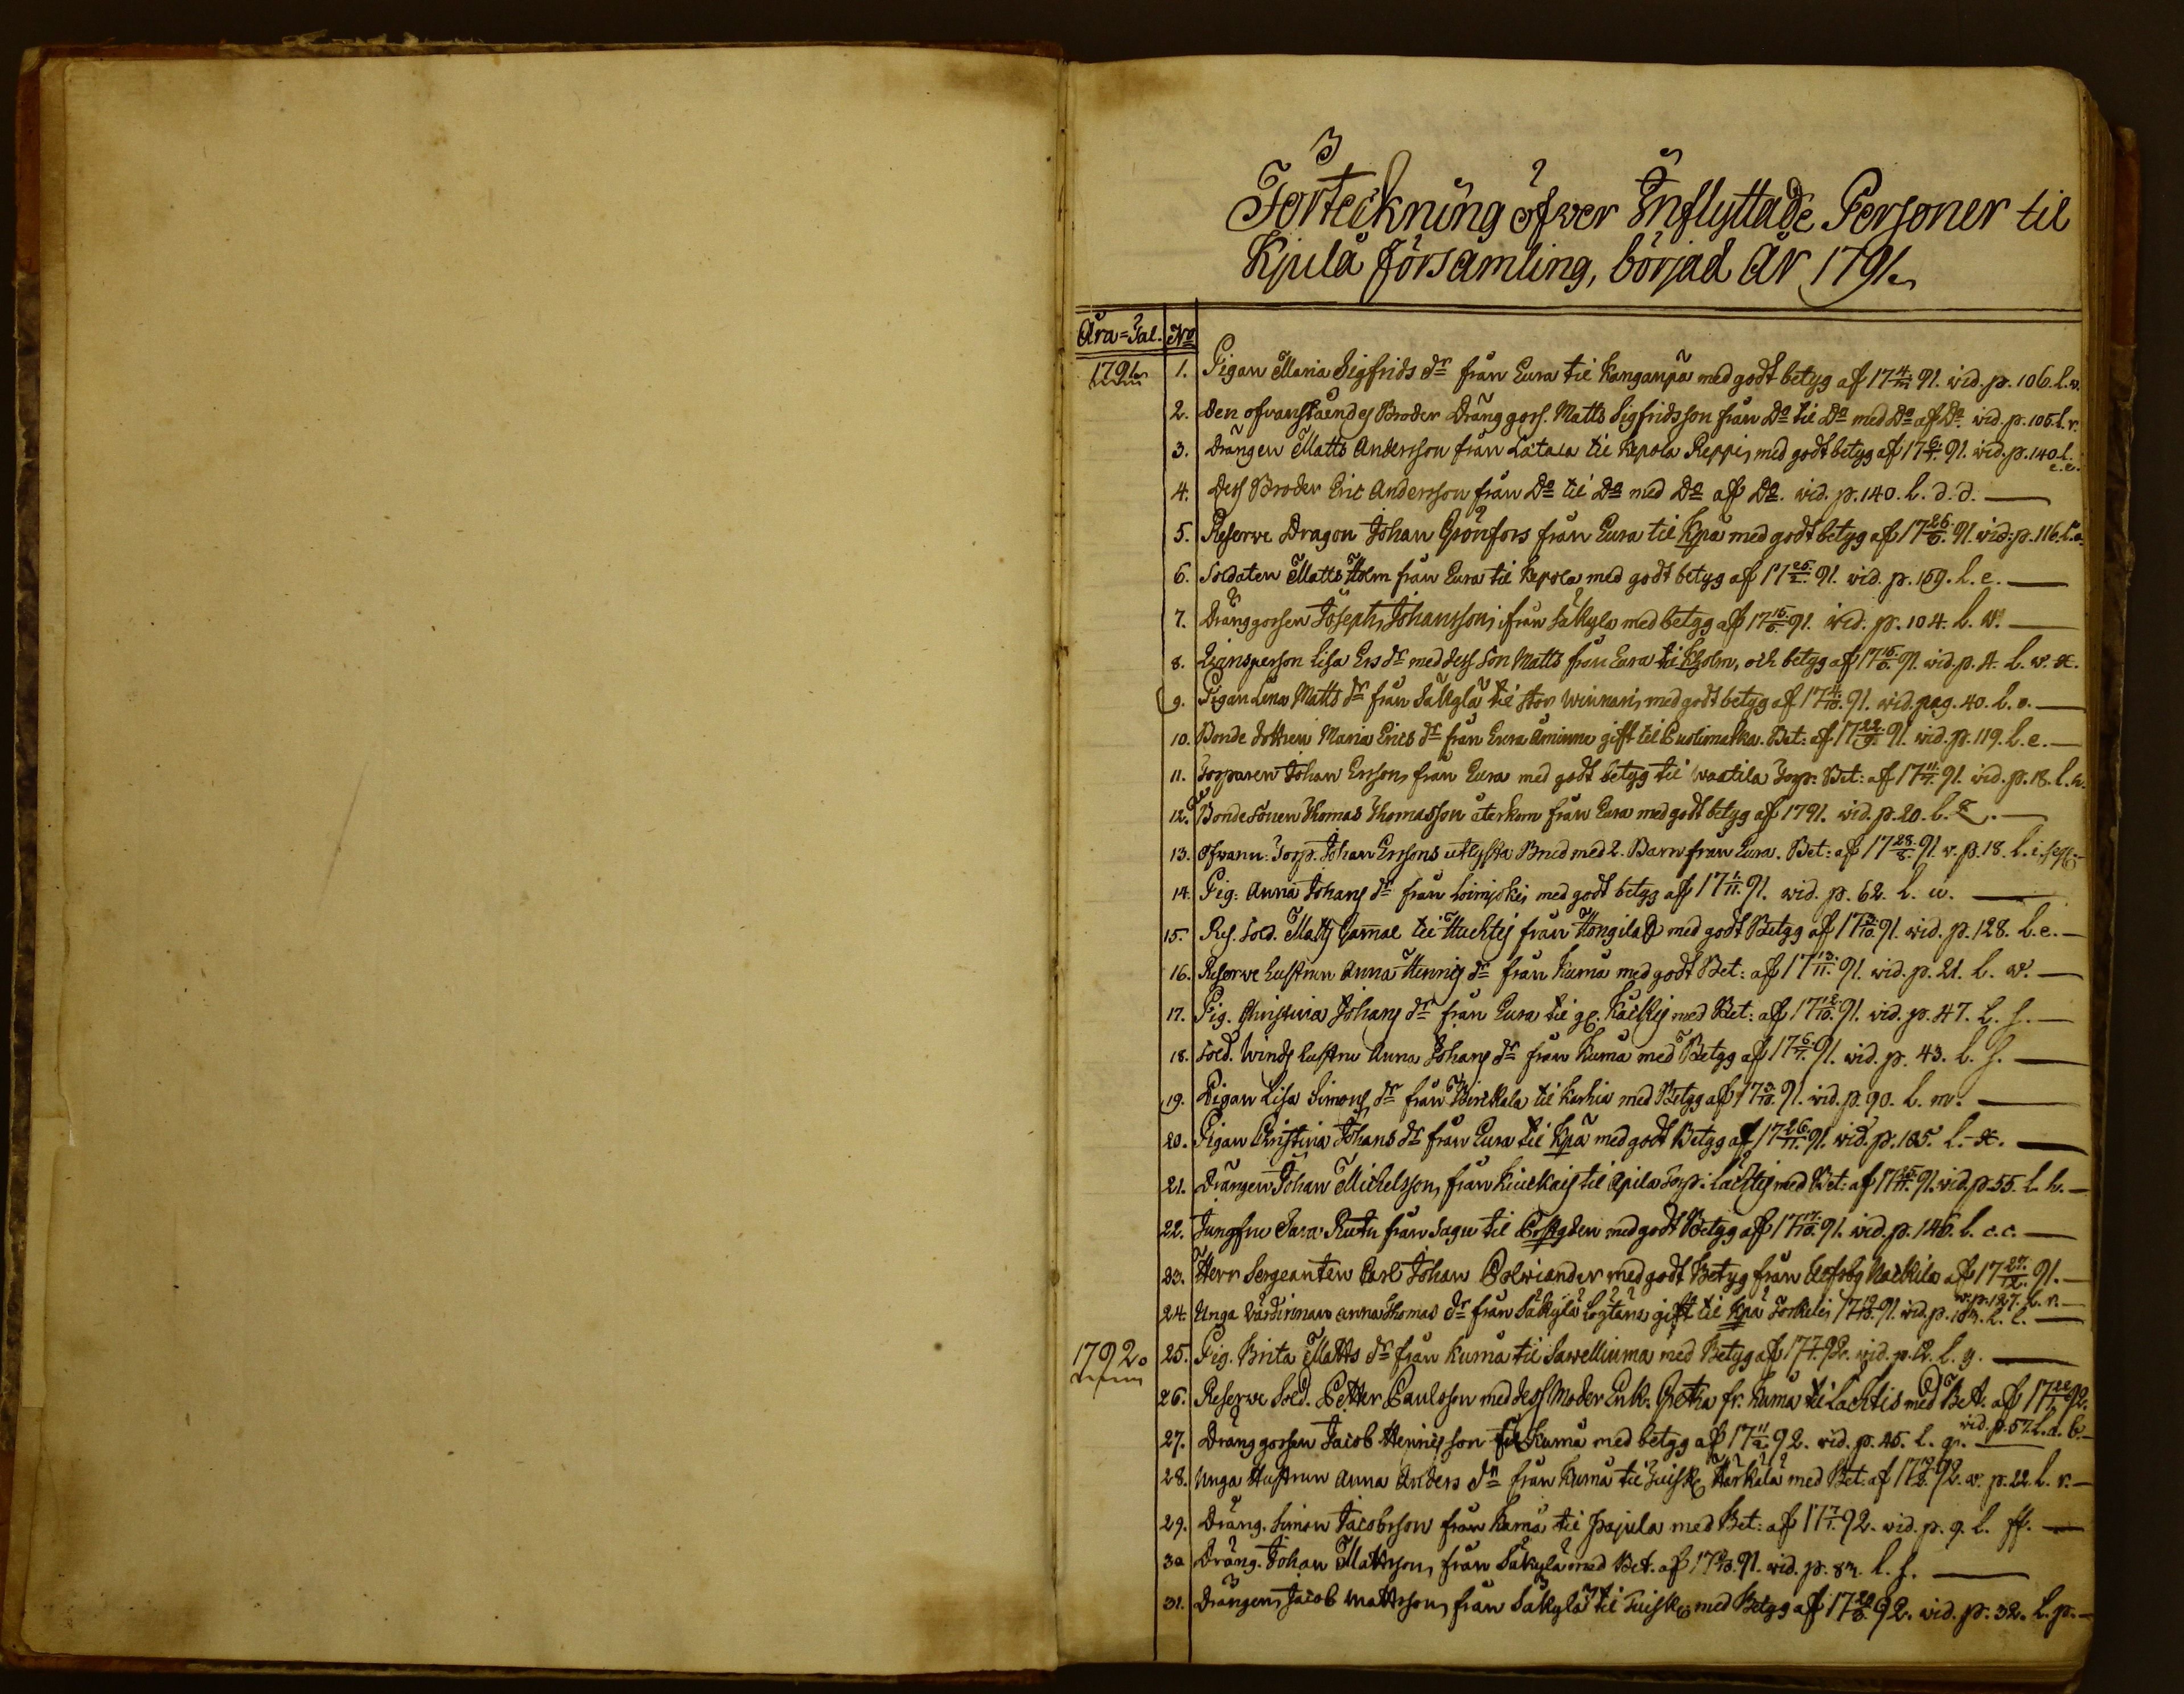 Förteckning öfwer Inflyttade Personer til
Kjulå församling, börjad år 1791.
Åra-Tal. No
1791. 1. Pigan Maria Sigfrids dr från Eura til Kanganpä med godt betyg af 17 4/ 91. wid. p. 106. l.
2. Den ofvanståendes Broder Dräng goss. Matts Sigfridsson från Do til Do med Do af Do. wid p. 105. l. r.
3. Drängen Matts Andersson från til Kepola Reppi, med godt betyg af 17 6/7. 91. wid. p. 140. l. c.c.
4. Dess Broder Eric Andersson från Do til Do med Do af Do. wid. p. 140. l. d. d.
5. Reserve Dragon Johan Grönfors från Eura til Kpä med godt betyg af 17 26/ 91. wid. p. 116. l. a.
6. Soldaten Matts Holm från Eura til Kepola med godt betyg af 17 25/2. 91. wid. p. 159. l. e.
7. Dränggossen Joseph Johansson, från Säkylä med betyg af 17 91. wid. p. 104. l.
8. Lisa Ers dr med dess Son Matts från Eura til och betyg af 17 91. wid. p. 4. l. w. x.
9. Pigan Lena Matts dr från Säkylä til Stor med godt betyg af 17 4/10. 91. wid. pag. 40. l. o.
10. Bonde dottren Maria Erics dr från Eura Åminne gift til Bet: af 17 22/9. 91. wid. p. 119. l. e.
11. Torparen Johan Ersson, från Eura med godt betyg til Waatila Torp. Bet: af 17 11/7. 91. wid. p. 18. l. h.
12. Bonde Sonen Thomas Thomasson återkom från Eura med godt betyg af 1791. wid. p. 20. l. z.
13. Ofvann: Torp. Johan Erssons Brud med 2. Barn från Eura. Bet: af 17 28/8. 91. w. p. 18. l. i. seq.
14. Pig. Anna Johans dr från Loimjoki, med godt betyg af 17 1/11. 91. wid. p. 62. l. u.
15. Res. Sold. Matts Gammal til Huchtis från med godt Betyg af 17 91. wid. p. 128. l. e.
16. Reserve hustrun Anna Henrics dr från Kumå med godt Bet: af 17 13/11. 91. wid. p. 21. l. w.
17. Pig. Christina Johans dr från Eura til med Bet: af 17 12/10. 91. wid. p. 47. l. s.
18. Sold. Winds hustru Anna Johans dr från Kumå med Betyg af 17 6/7. 91. wid. p. 43. l. s.
19. Pigan Lisa Simons dr från Birckala til Karhia med Betyg af 17 91. wid. p. 90. l. m.
20. Pigan Christina Johans dr från Eura til Kpä med godt Betyg af 17 26/11. 91. wid. p. 185. l. x.
21. Drängen Johan Michelsson, från Kiuckais til Apila Torp. Lachtis med Bet: af 17 25/11. 91. wid. p. 55. l. h.
22. Jungfru Sara från Sagu til med godt Betyg af 17 17/10. 91. wid. p. 146. l. c.c.
23. Herr Sergeanten Carl Johan Polviander med godt Betyg från Ulfsby af 17 27/12. 91.
w. p. 127. l. r.
24. Unga Värdinnan Anna Thomas dr från Säkylä gift til Kpä 17 91. wid. p. l. l.
1792. 25. Pig. Brita Matts dr från Kumå til Sawellinma med Betyg af 17 92. wid. p. 12. l. y.
26. Reserve Sold. Petter Paulsson med dess Moder Enk. Gretha fr. Kumå til Lachtis med Bet. af 17 22/1. 92.
wid. p. 57. l. a. b.
27. Dränggossen Jacob Henricsson Kumå med betyg af 17 11/2. 92. wid. p. 45. l. q.
28. Unga Hustrun Anna Anders dr från Kumå til Tuisk. Härkälä med Bet: af 17 92. w. p. 22. l. r.
29. Dräng. Simon Jacobsson från Kumå til Pajula med Bet: af 17 7/1. 92. wid. p. 9. l. ff.
30 Dräng. Johan Mattsson, från Säkylä med Bet. af 17 91. wid. p. l. s.
31. Drängen, Jacob Mattsson, från Säkylä til Tuisk. med Betyg af 17 92. wid. p. 32. l. p.